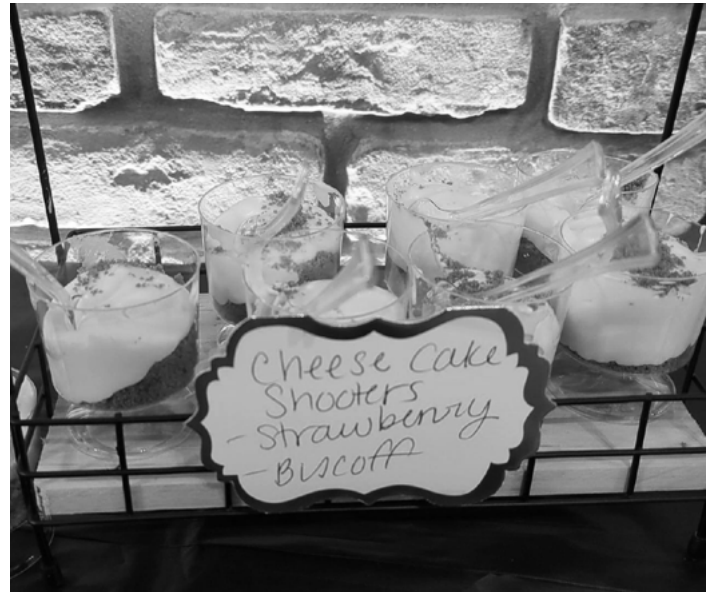 Cheese Cake
Shooters
- Strawberry
- Biscoff